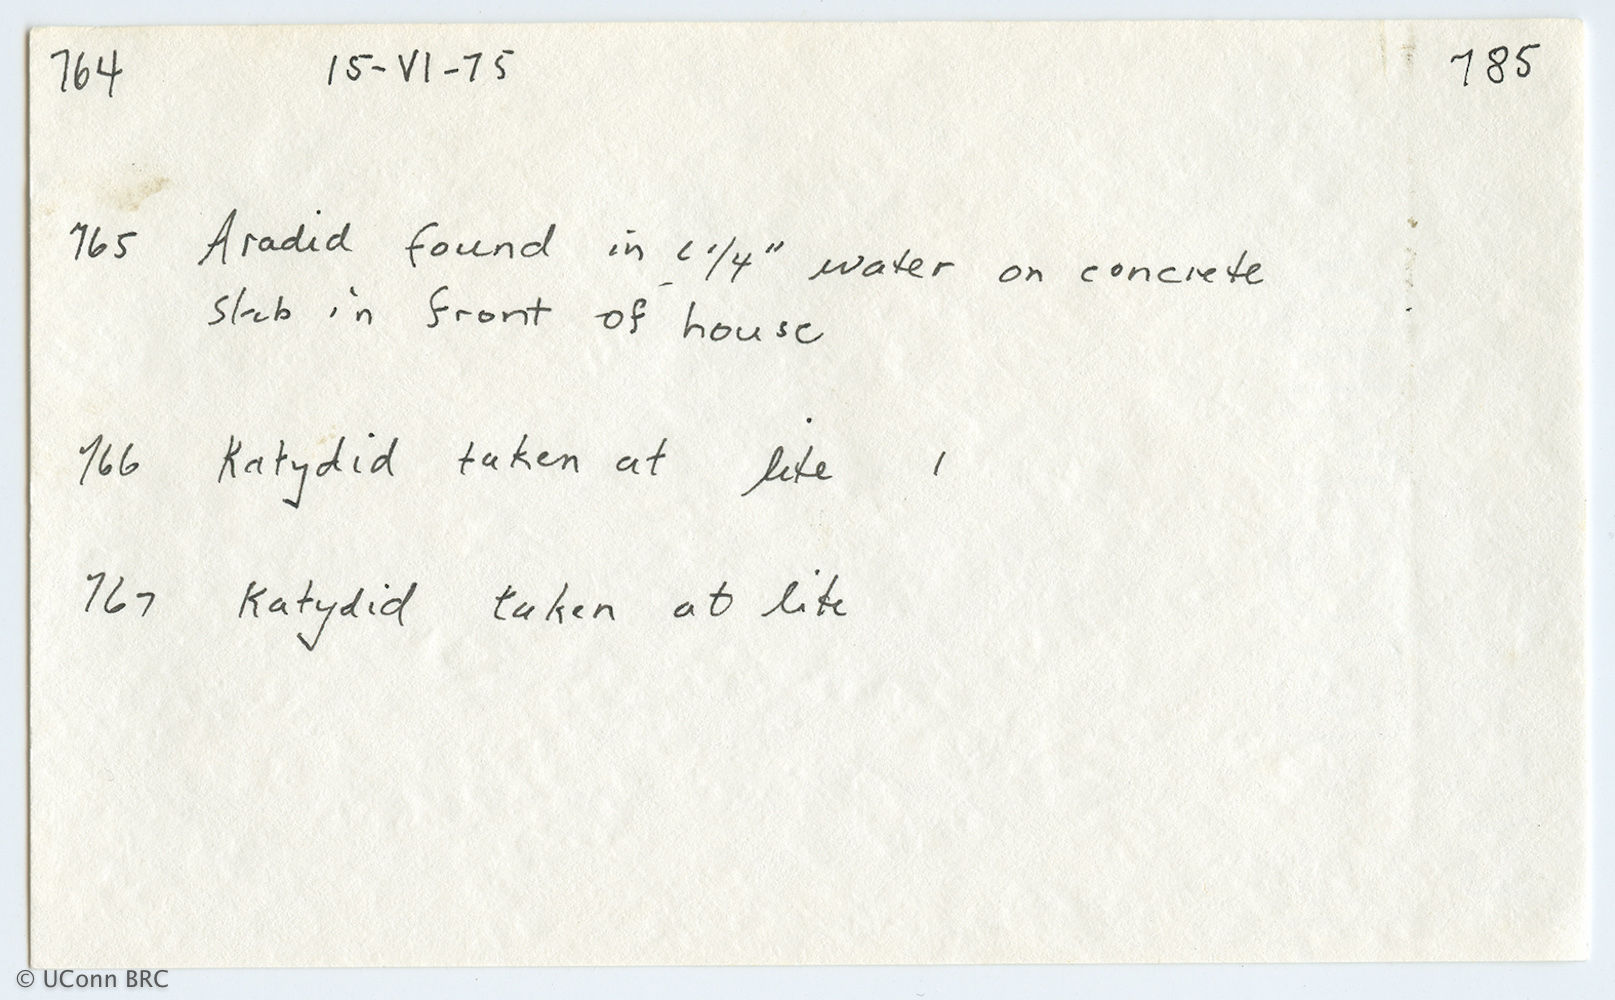 764 15-VI-75 785
765 Aradid found in <1/4" water on concrete
slab in front of house
766 Katydid taken at lite
767 Katydid taken at lite
© UConn BRC